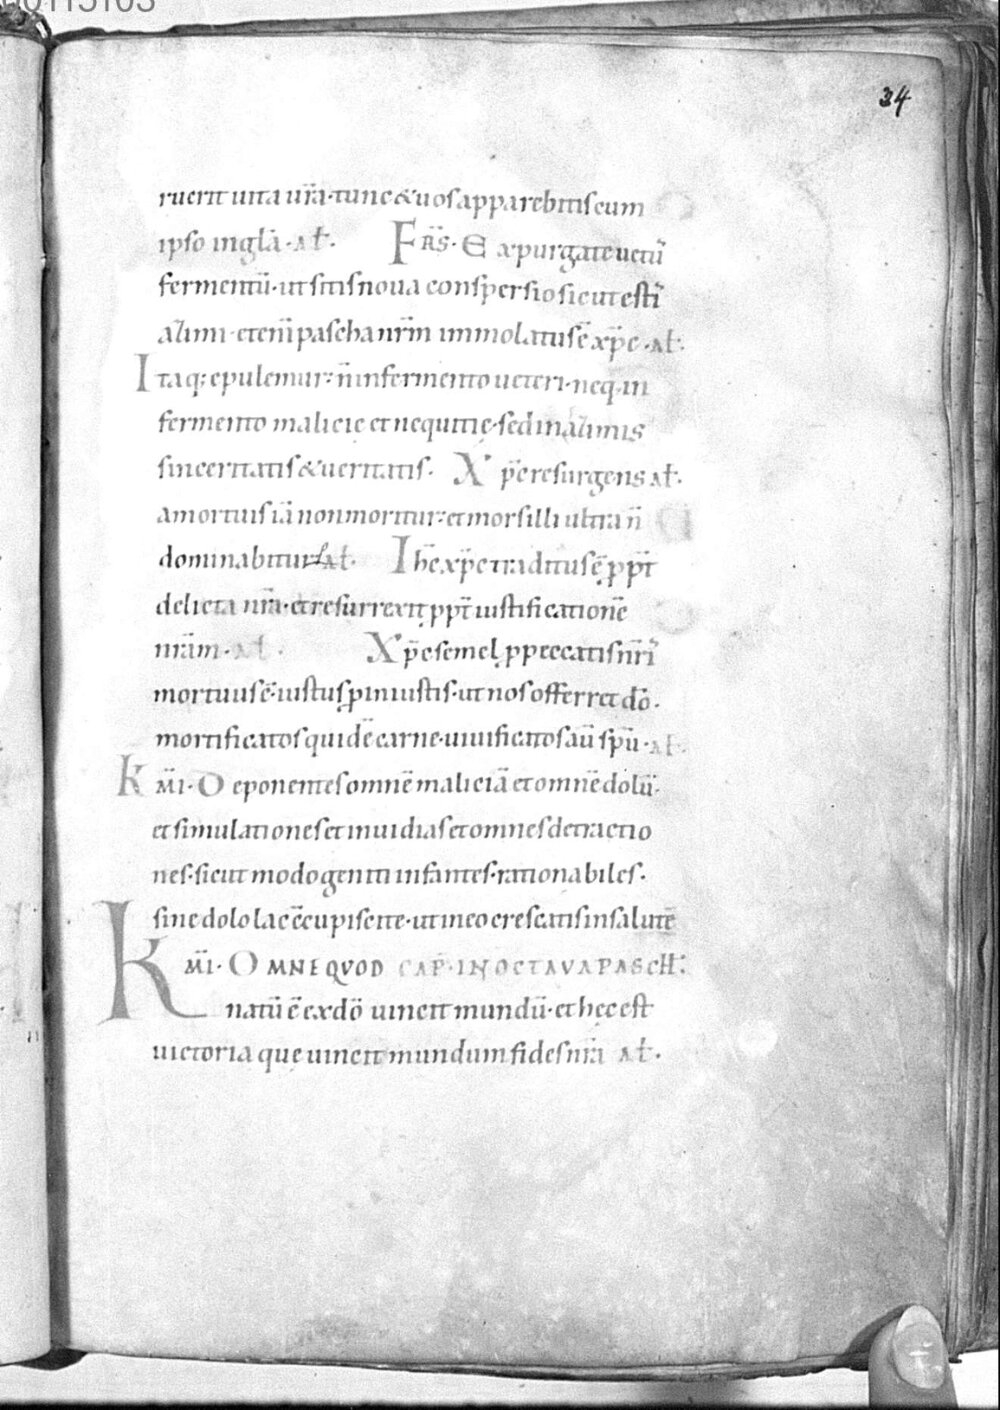 00115103
34
ruerit uita ur̄a · tunc & uos apparebitis cum
ipso in gl̄a · al̄ · Fr̄s · Expurgate uetu᷒
fermentū · ut sitis noua conspersio sicut esti᷒
azimi · etenī pascha nr̄m immolatus ē xp̄c · al̄ ·
Itaq; epulemur · n̄ in fermento ueteri · neq · in
fermento malicie et nequitię · sed in azimis
sinceritatis & ueritatis · Xp̄c resurgens al̄ ·
a mortuis iā non moritur · et mors illi ultra n̄
dominabitur al̄ · Ihc̄ xp̄c traditus ē ppt̄
delicta nr̄a · et resurrexit ppt̄ iustificationē
nr̄am · al̄ · Xp̄c semel p peccatis nr̄i᷒
mortuus ē · iustus p iniustis · ut nos offerret dō ·
mortificatos quidē carne · uiuificatos aū sp̄u · al̄ ·
Km̄i · Deponentes omnē maliciā et omnē dolū ·
et simulationes et inuidias et omnes detractio
nes · sicut modo geniti infantes · rationabiles ·
sine dolo lac c̄cupiscite · ut in eo crescatis in salutē
Km̄i · OMNE QVOD CAP̄ · IN OCTAVA PASCH̄ :
natū ē ex dō uincit mundū · et hęc est
uictoria quę uincit mundum fides nr̄a al̄ ·